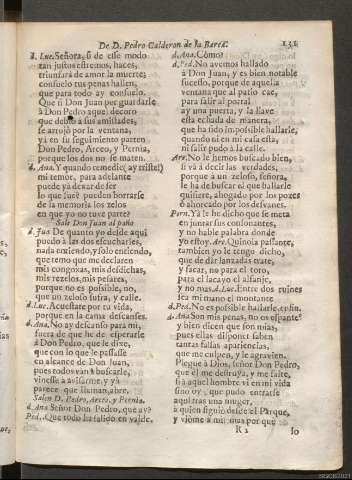 De D. Pedro Calderon de la Barca.
131
d. Luc. Señora, si de esse modo
tan justos estremos, haces,
triunfarà de amor la muerte;
consuelo tus penas hallen,
que para todo ay consuelo.
Que si Don Juan por guardarle
à Don Pedro aquel decoro
que debiò a sus amistades,
se arrojò por la ventana,
yà en su seguimiento parten
Don Pedro, Arceo, y Pernia,
porque los dos no se maten.
d. Ana. Y quando remedie (ay triste!)
mi temor, para adelante
puede yà dexar de ser
lo que fue? pueden borrarse
de la memoria los zelos
en que yo no tuve parte?
Sale Don Juan al paño
d. Jua. De quanto yo desde aqui
puedo à las dos escucharles,
nada entiendo, y solo entiendo,
que temo que me declaren
mis congoxas, mis desdichas,
mis rezelos, mis pesares,
porque no es possible, no,
que un zeloso sufra, y calle.
d. Luc. Acuestate por tu vida,
porque en la cama descanses.
d. Ana. No ay descanso para mi,
fuera de que he de esperarle
à Don Pedro, que le dixe,
que con lo que le passasse
en alcance de Don Juan,
pues todos vàn à buscarle,
viniesse à avisarme, y yà
parece que llaman, abre.
Salen D. Pedro, Arceo, y Pernia.
d. Ana Señor Don Pedro, que ay?
Ped. Que todo ha salido en valde.
d. Ana. Còmo?
d. Ped. No avemos hallado
à Don Juan, y es bien notable
sucesso, porque de aquella
ventana que al patio cae,
para salir al portal
ay una puerta, y la llave
està echada de manera,
que ha sido impossible hallarle,
quando ni en mi casa està,
ni salir pudo à la calle.
Arc. No le hemos buscado bien,
si và à decir las verdades;
porque à un zeloso, señora,
le ha de buscar el que hallarle
quisiere, ahogado por los pozos
ò ahorcado por los desvanes.
Pern. Yà le he dicho que se meta
en juntar sus consonantes,
y no hable palabra donde
yo estoy. Arc. Quinola passante,
tambien yo le tengo dicho,
que de dàr lanzadas trate,
y sacar, no para el toro,
para el lacayo el alfanje,
y no mas. d. Luc. Entre dos ruines
sea mi mano el montante
d. Ped. No es possible hallarle en fin.
d. Ana Son mis penas, no os espante
y bien dicen que son mias,
pues ellas disponer saben
tantas falsas apariencias,
que me culpen, y le agravien.
Plegue à Dios, señor Don Pedro,
que el me destruya, y me falte,
si à aquel hombre vi en mi vida
sino oy, que pudo entrarse
aqui tras una muger,
à quien siguiò desde el Parque,
y viòme à mi; mas por què
R 2
so